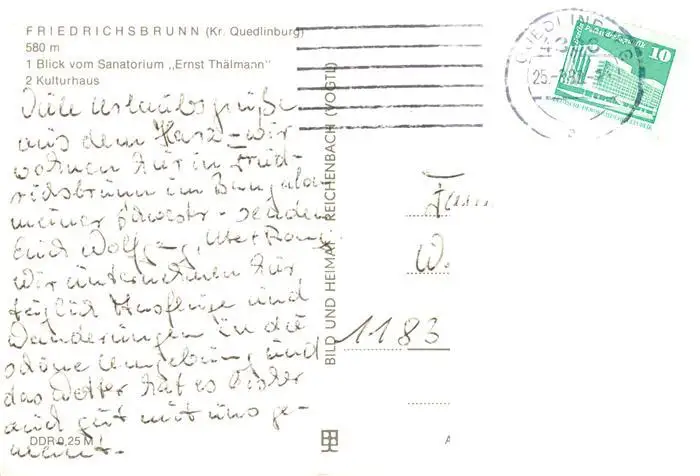 FRIEDRICHSBRUNN (Kr. Quedlinburg)
580 m
1 Blick vom Sanatorium „Ernst Thälmann"
2 Kulturhaus
Viele Urlaubsgrüße
aus dem Harz – wir
wohnen hier in Fried-
richsbrunn im Bungalow
meiner Schwester - senden
Euch Wolfgang, Ute + Romy.
Wir unternehmen hier
täglich Ausflüge und
Wanderungen in die
schöne Umgebung und
das Wetter hat es bisher
auch gut mit uns ge-
meint.
DDR 0,25 M
BILD UND HEIMAT REICHENBACH (VOGTL)
QUEDLINBURG
25.-8.81
10
Fam
W.
1183